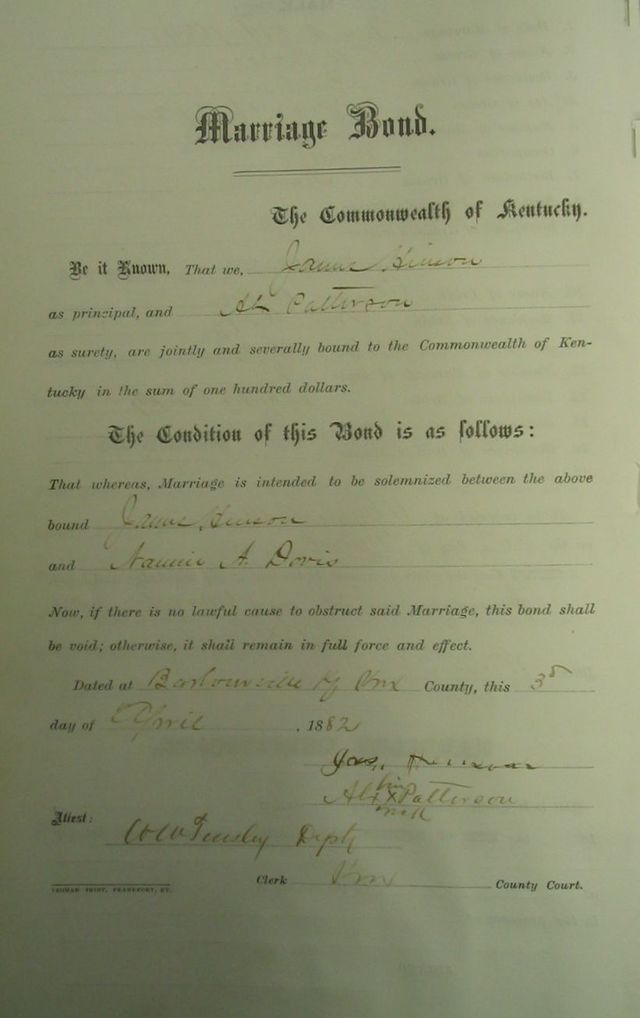 Marriage Bond.
The Commonwealth of Kentucky.
Be it Known, That we, James Hinson
as principal, and Alx Patterson
as surety, are jointly and severally bound to the Commonwealth of Ken-
tucky in the sum of one hundred dollars.
The Condition of this Bond is as follows:
That whereas, Marriage is intended to be solemnized between the above
bound James Hinson
and Nannie A. Doris
Now, if there is no lawful cause to obstruct said Marriage, this bond shall
be void; otherwise, it shall remain in full force and effect.
Dated at Barbourville Ky Knx County, this 3d
day of April, 1882
Jas. Hinson
his
Alx X Patterson
mark
Attest:
Tinsley Depty
Clerk Knx County Court.
YEOMAN PRINT, FRANKFORT, KY.